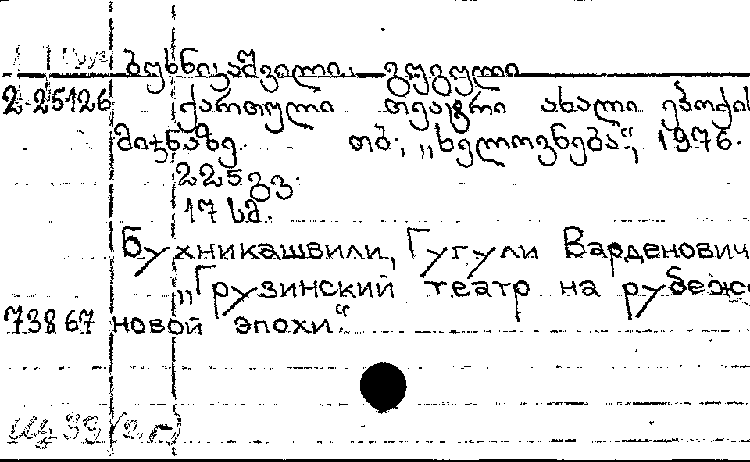 ბუხნიკაშვილი, გუგული
2-25126 ქართული თეატრი ახალი ეპოქის
მიჯნაზე. თბ., „ხელოვნება“, 1976.
225 გვ.
17 სმ.
Бухникашвили, Гугули Варденович
„Грузинский театр на рубеже
73867 новой эпохи“